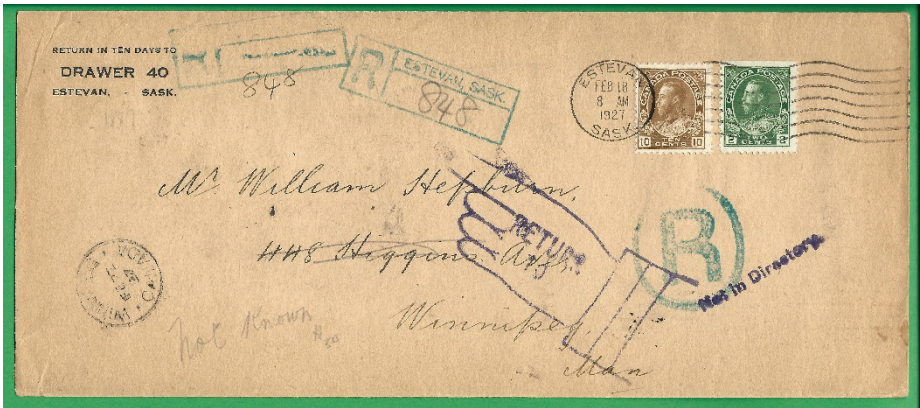 RETURN IN TEN DAYS TO
DRAWER 40
ESTEVAN, - SASK.
R
848
R
ESTEVAN, SASK.
848
ESTEVAN
FEB 18
8 AM
1927
SASK.
CANADA POSTAGE
10 10
TEN
CENTS
CANADA POSTAGE
2 2
TWO
CENTS
Mr William Hepburn,
448 Higgins Ave.
Winnipeg,
Man
RETURN
R
Not in Directory
Not Known